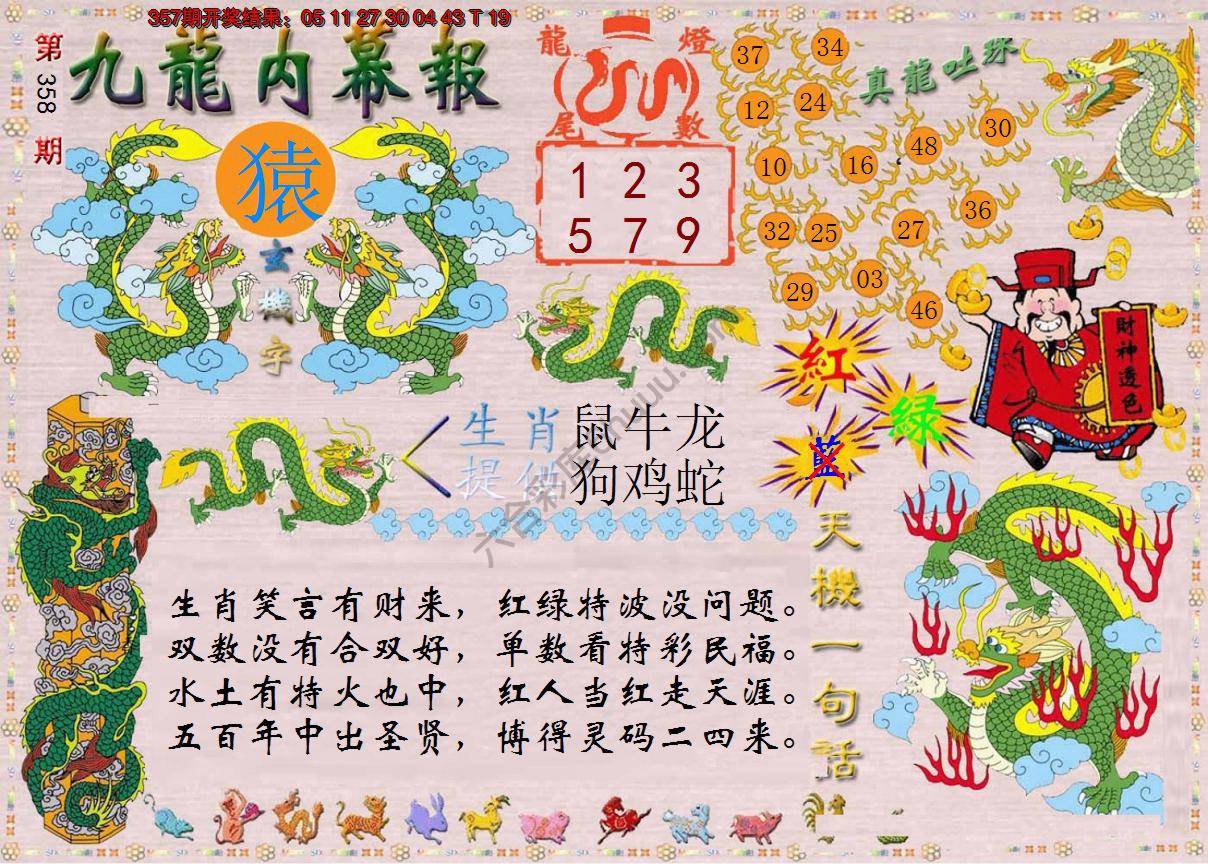 357期开奖结果：05 11 27 30 04 43 T 19
第358期
九龍内幕報
龍燈
尾數
1 2 3
5 7 9
真龍吐珠
37
34
12
24
48
30
10
16
36
32
25
27
29
03
46
猿
玄機字
財神透色
紅
绿
藍
生肖
提供
鼠牛龙
狗鸡蛇
六合彩库
天機一句話
生肖笑言有财来，红绿特波没问题。
双数没有合双好，单数看特彩民福。
水土有特火也中，红人当红走天涯。
五百年中出圣贤，博得灵码二四来。